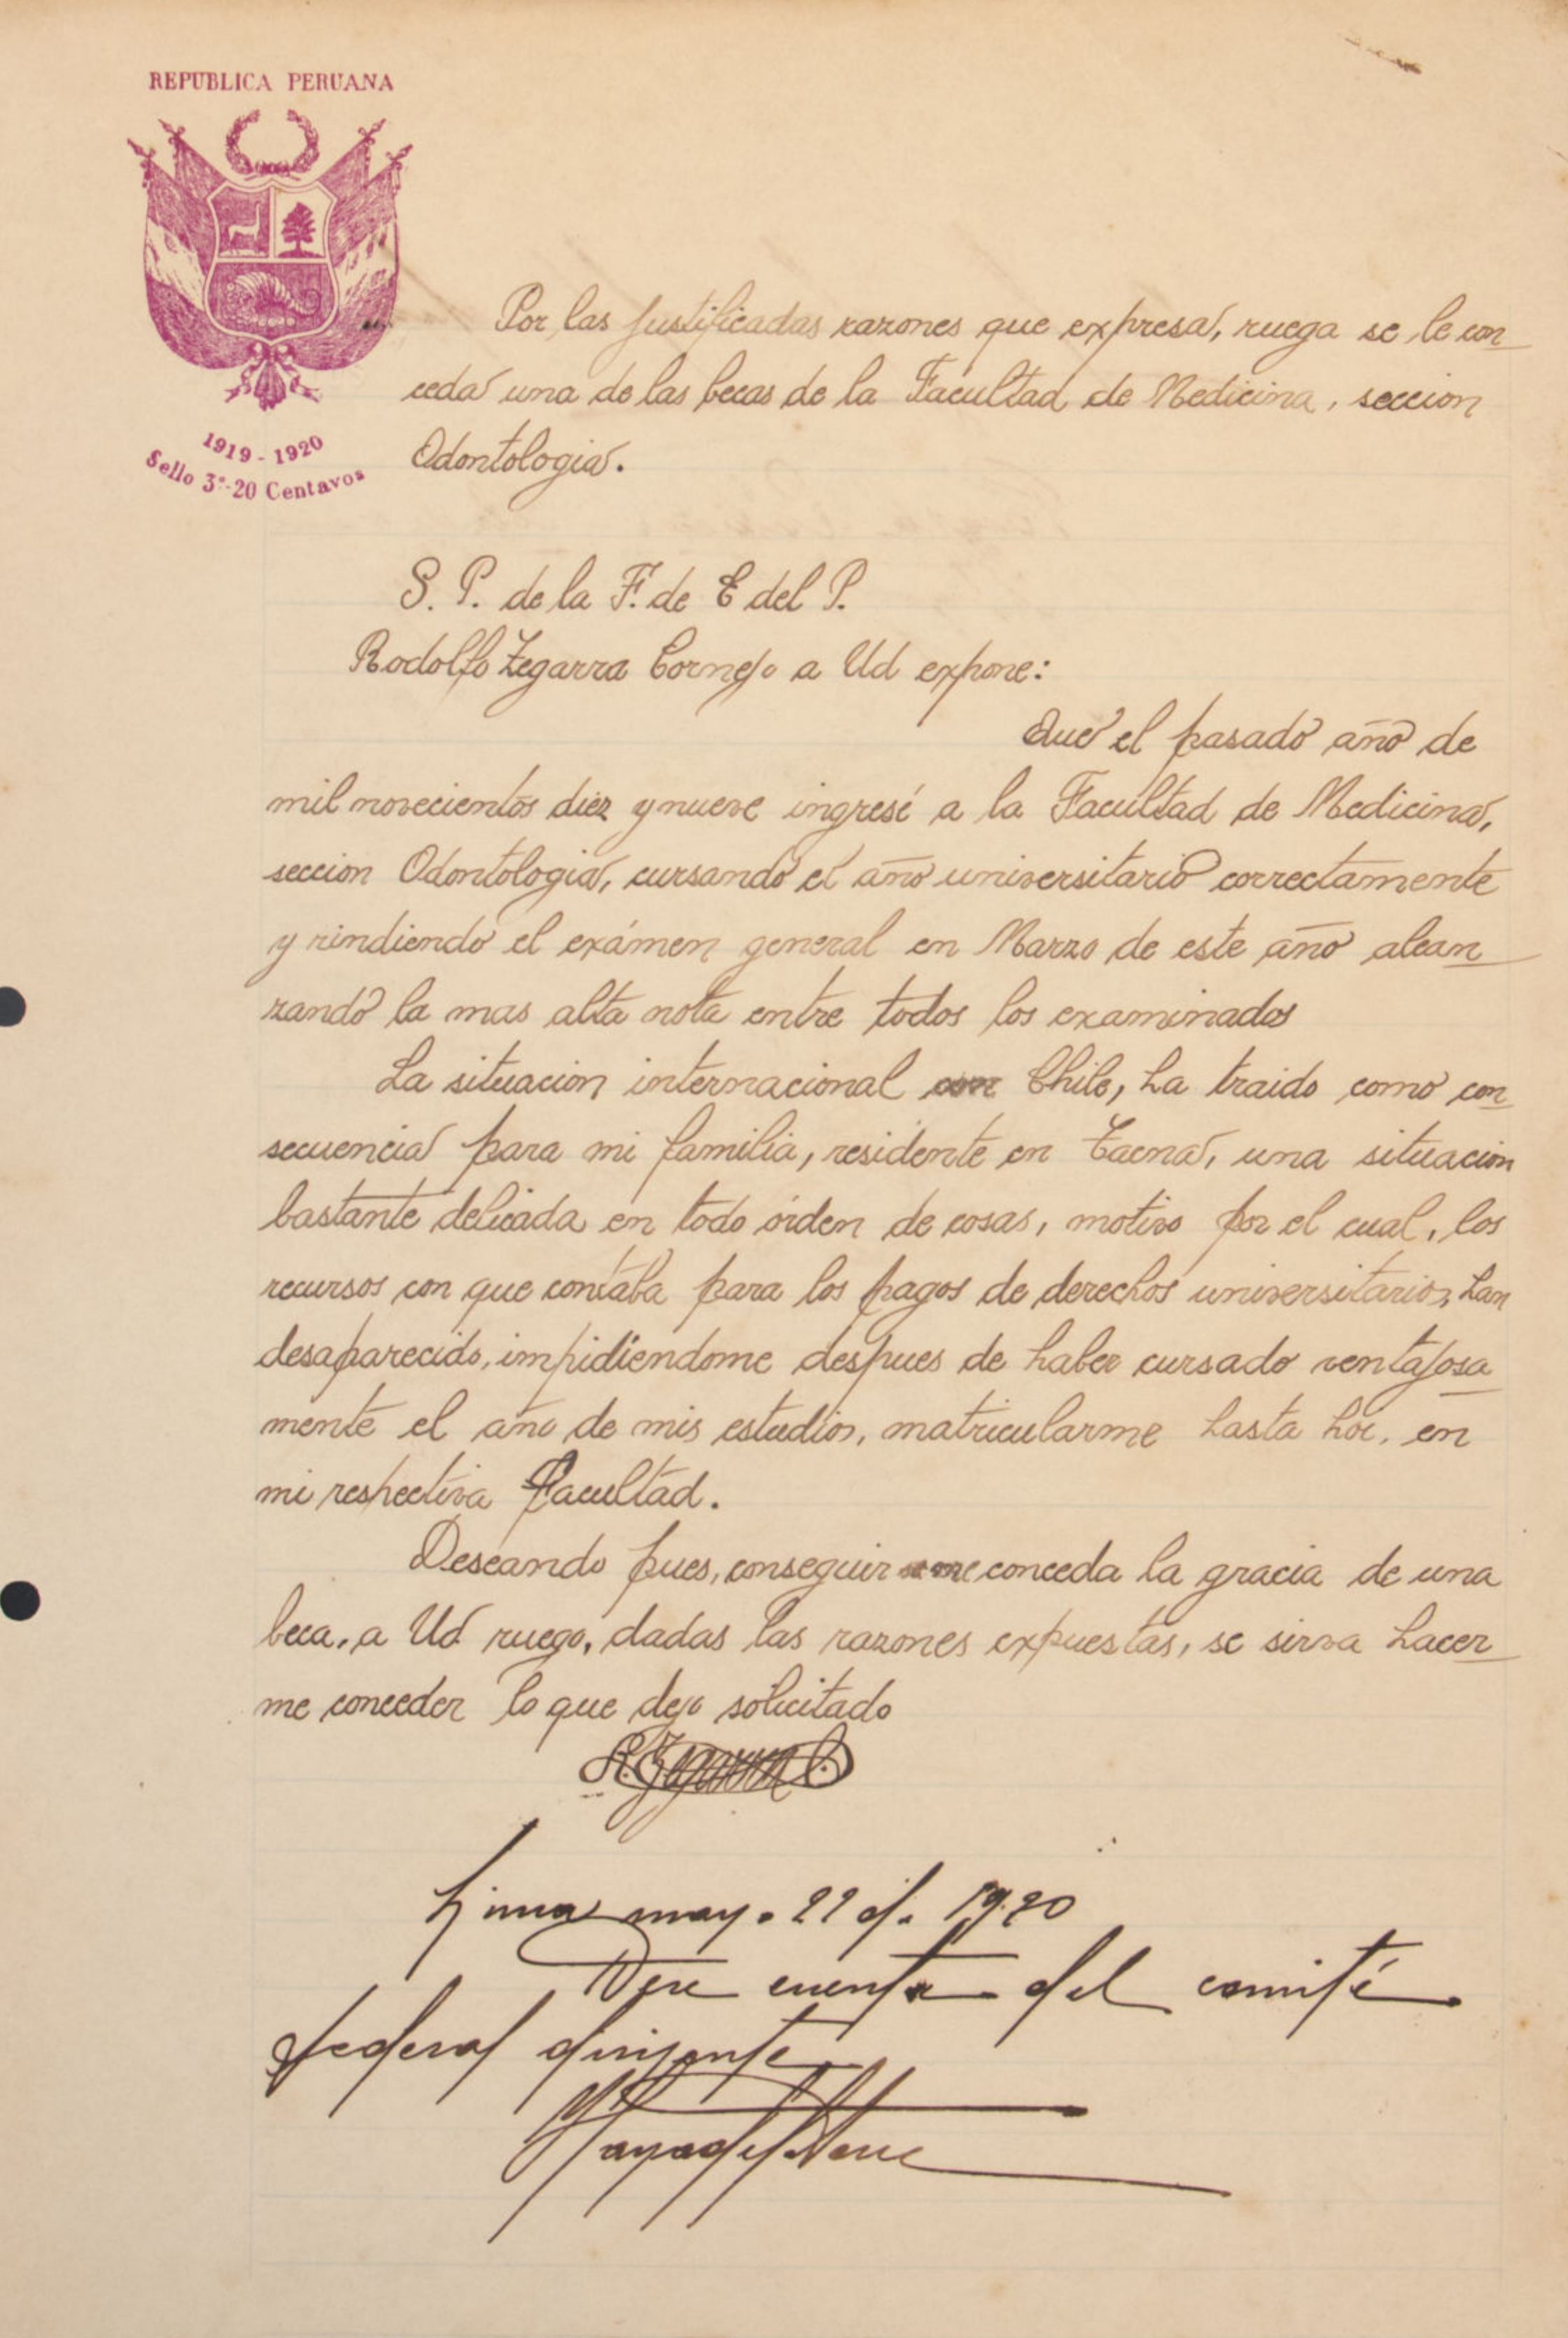 REPUBLICA PERUANA
1919-1920
Sello 3º-20 Centavos
Por las justificadas razones que expresa, ruega se le con
ceda una de las becas de la Facultad de Medicina, seccion
Odontologia.
S. P. de la F. de E del P.
Rodolfo Zegarra Cornejo a Ud expone:
Que el pasado año de
mil novecientos diez y nueve ingresé a la Facultad de Medicina,
seccion Odontologia, cursando el año universitario correctamente
y rindiendo el exámen general en Marzo de este año alcan
zando la mas alta nota entre todos los examinados
La situacion internacional con Chile, ha traido como con
secuencia para mi familia, residente en Tacna, una situacion
bastante delicada en todo órden de cosas, motivo por el cual, los
recursos con que contaba para los pagos de derechos universitarios, han
desaparecido, impidiendome despues de haber cursado ventajosa
mente el año de mis estudios, matricularme hasta hoi, en
mi respectiva Facultad.
Deseando pues, conseguir se me conceda la gracia de una
beca, a Ud. ruego, dadas las razones expuestas, se sirva hacer
me conceder lo que dejo solicitado
R. Zegarra C.
Lima mayo 22 de 1920
Dése cuenta del comité
federal dirigente
Haya de la Torre